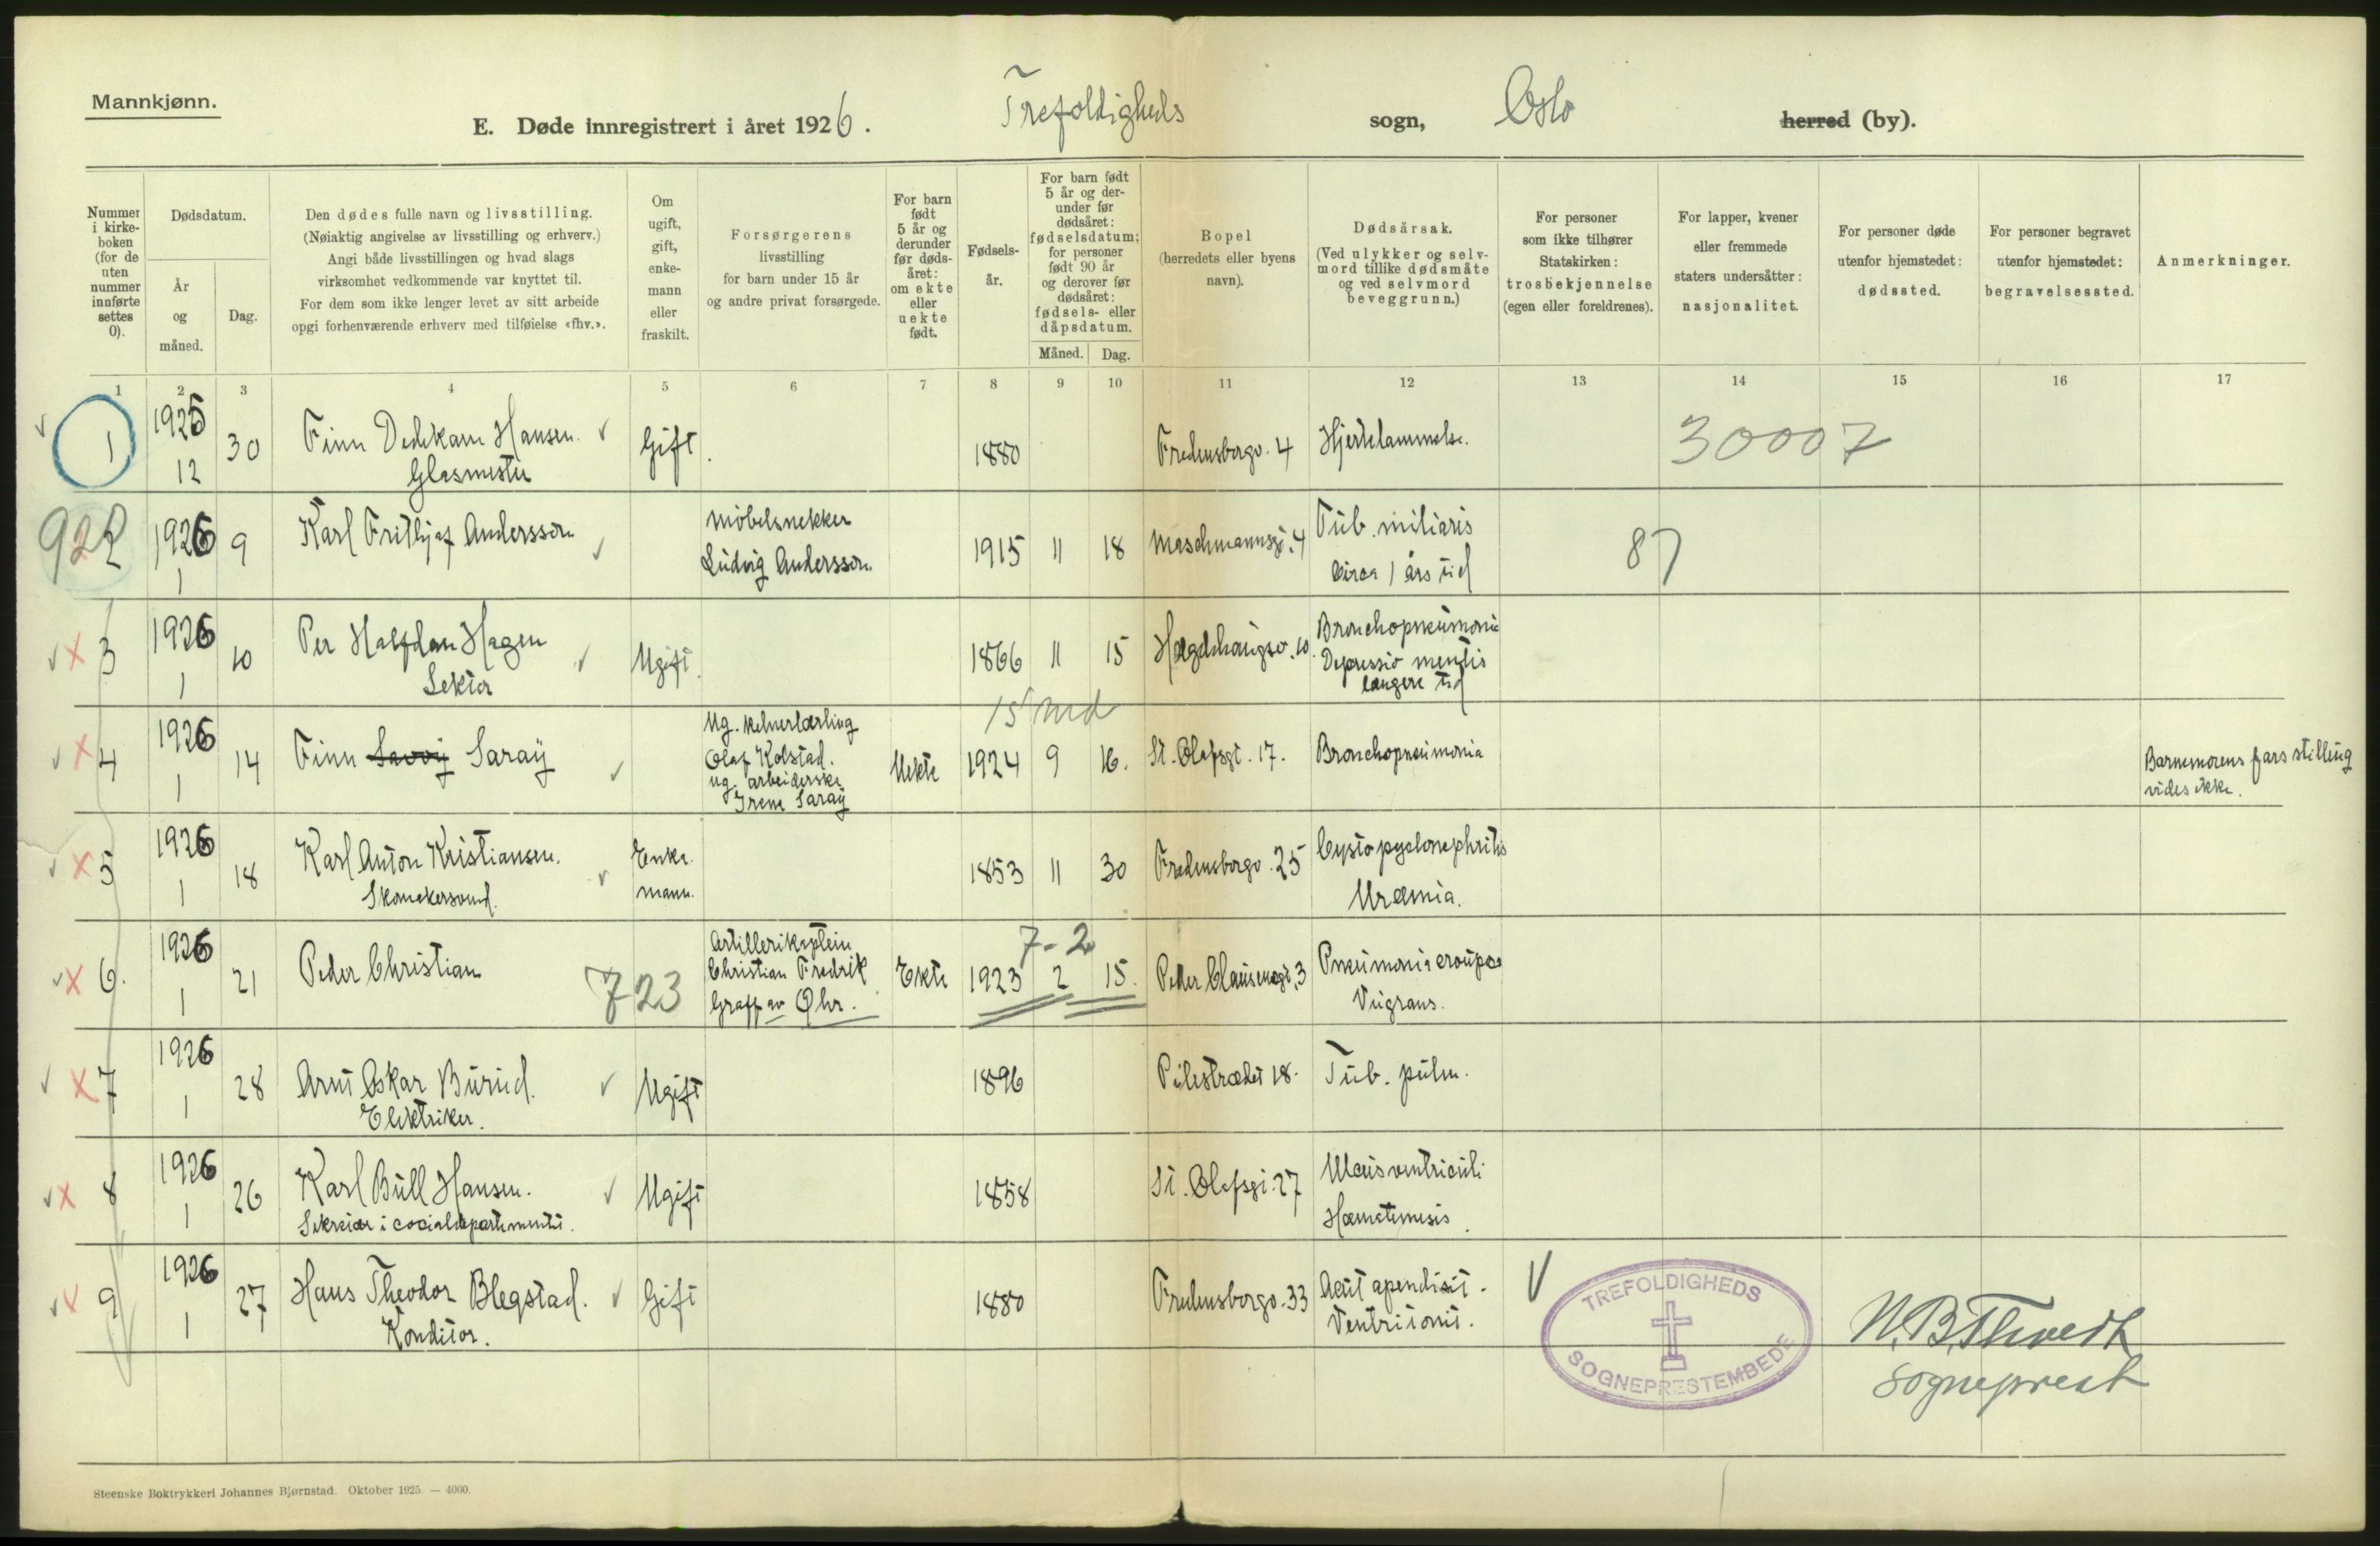 Mannkjønn.
E. Døde innregistrert i året 1926. Trefoldigheds sogn, Oslo herred (by).
Nummer i kirkeboken (for de uten nummer innførte settes 0).
Dødsdatum.
År og måned.
Dag.
Den dødes fulle navn og livsstilling.
(Nøiaktig angivelse av livsstilling og erhverv.)
Angi både livsstillingen og hvad slags
virksomhet vedkommende var knyttet til.
For dem som ikke lenger levet av sitt arbeide
opgi forhenværende erhverv med tilføielse «fhv.».
Om ugift, gift, enkemann eller fraskilt.
Forsørgerens
livsstilling
for barn under 15 år
og andre privat forsørgede.
For barn født 5 år og derunder før dødsåret: om ekte eller uekte født.
Fødselsår.
For barn født 5 år og derunder før dødsåret: fødselsdatum; for personer født 90 år og derover før dødsåret: fødsels- eller dåpsdatum.
Måned. Dag.
Bopel
(herredets eller byens
navn).
Dødsårsak.
(Ved ulykker og selvmord tillike dødsmåte og ved selvmord beveggrunn.)
For personer
som ikke tilhører
Statskirken:
trosbekjennelse
(egen eller foreldrenes).
For lapper, kvener
eller fremmede
staters undersåtter:
nasjonalitet.
For personer døde
utenfor hjemstedet:
dødssted.
For personer begravet
utenfor hjemstedet:
begravelsessted.
Anmerkninger.
1 2 3 4 5 6 7 8 9 10 11 12 13 14 15 16 17
1 1925 12 30 Finn Dedekam Hansen. Gift. 1880 Fredensborgv. 4 Hjertelammelse. 30007
Glasmester
922 1926 1 9 Karl Frithjof Andersson Møbelsnekker 1915 11 18 Maschmannsgt. 4 Tub. miliaris 87
Ludvig Andersson. Circa 1 års tid
3 1926 1 10 Per Halfdan Hagen Ugift. 1866 11 15 Hægdehaugsv. 10. Bronchopneumonia
Lektor Depressio mentis
længere tid
15 md
4 1926 1 14 Finn Savoy Saray Ug. kelnerlærling Uekte 1924 9 16. St. Olafsgt. 17. Bronchopneumonia Barnemorens fars stilling
Olaf Kolstad. vides ikke.
ug. arbeiderske
Irene Saray
5 1926 1 18 Karl Anton Kristiansen. Enke- 1853 11 30 Fredensborgv. 25 Cystopyelonephritis
Skomakersvend. mann. Uræmia.
7-2
6. 1926 1 21 Peder Christian 723 Artillerikaptein Ekte 1923 2 15. Peder Clausensgt. 3 Pneumonia croupøs
Christian Fredrik Vugrans.
Graff av Ohr.
7 1926 1 28 Arnt Oskar Burud. Ugift 1896 Pilestrædet 18. Tub. pulm.
Elektriker.
8 1926 1 26 Karl Bull Hansen. Ugift 1858 St. Olafsgt. 27 Ulcus ventriculi
Sekretær i socialdepartementet. Hæmatemesis.
9 1926 1 27 Hans Theodor Blegstad. Gift 1880 Fredensborgv. 33 Acut apendisit.
Konditor. Ventritonit.
TREFOLDIGHEDS
SOGNEPRESTEMBEDE
N. B. Thvedt
sogneprest
Steenske Boktrykkeri Johannes Bjørnstad. Oktober 1925. — 4000.